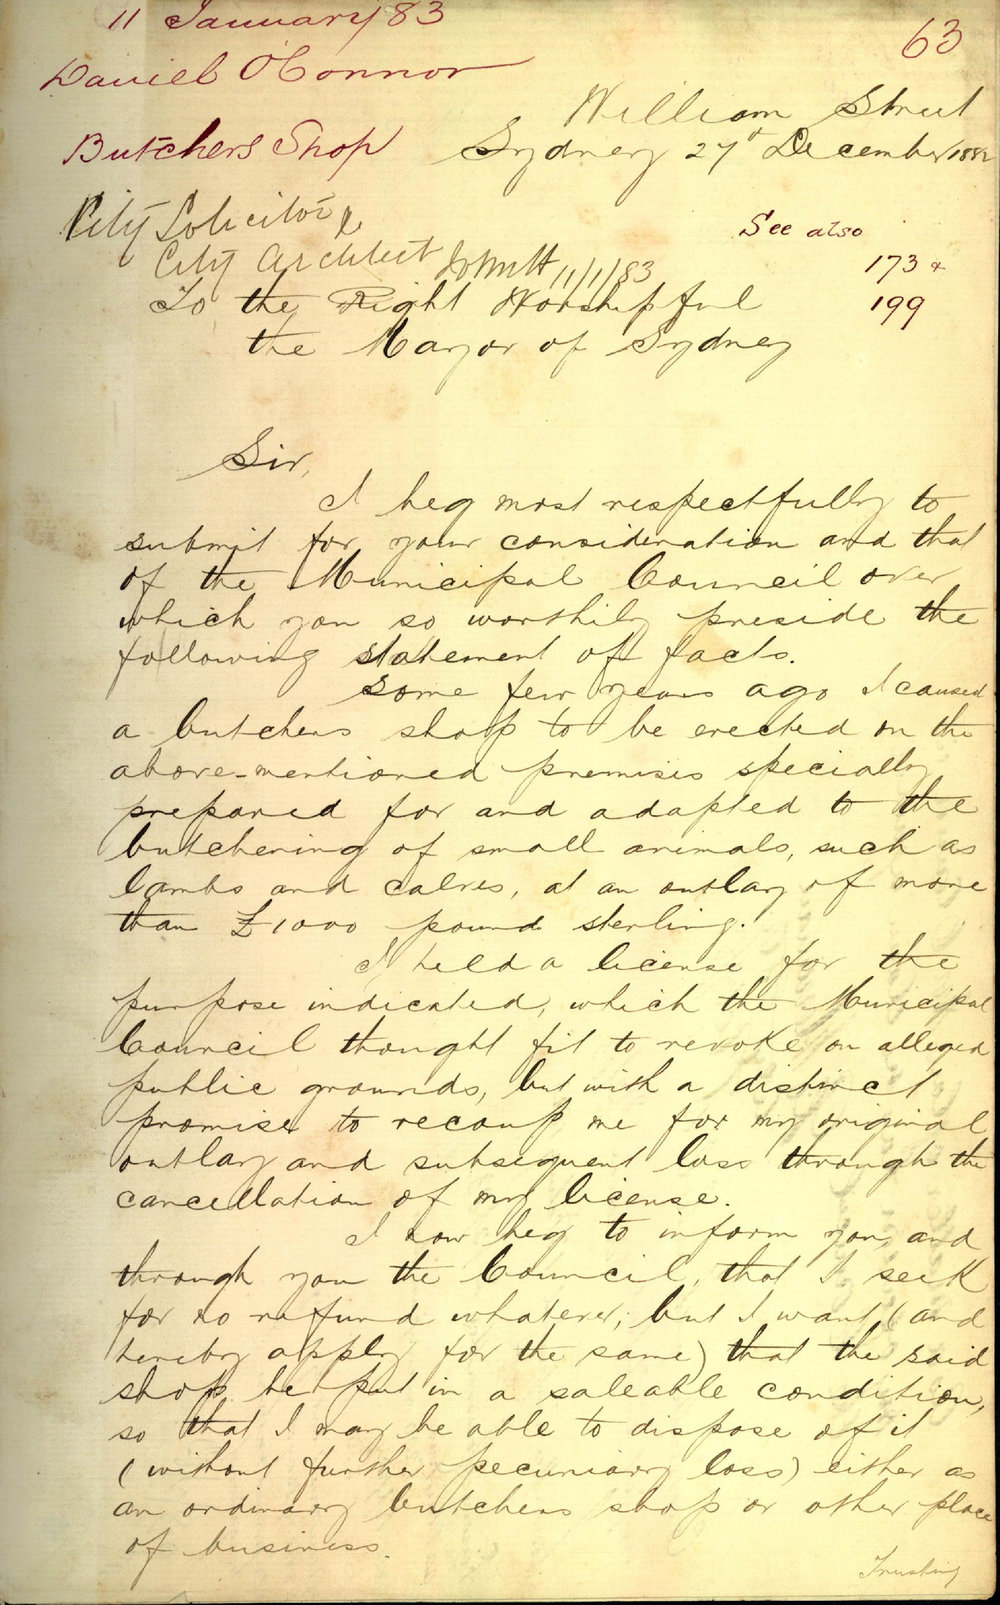 11 January 83
63
Daniel O'Connor
William Street
Butchers Shop
Sydney 27th December 1882
City Solicitor &
City Architect
11/1/83
See also
173 &
199
To the Right Worshipful
the Mayor of Sydney
Sir,
I beg most respectfully to
submit for your consideration and that
of the Municipal Council over
which you so worthily preside the
following statement of facts.
Some few years ago I caused
a butchers shop to be erected on the
above-mentioned premises specially
prepared for and adapted to the
butchering of small animals, such as
lambs and calves, at an outlay of more
than £1000 pound sterling.
I held a license for the
purpose indicated, which the Municipal
Council thought fit to revoke on alleged
public grounds, but with a distinct
promise to recoup me for my original
outlay and subsequent loss through the
cancellation of my license.
I now beg to inform you, and
through you the Council, that I seek
for no refund whatever; but I want (and
hereby apply for the same) that the said
shop be put in a saleable condition,
so that I may be able to dispose of it
(without further pecuniary loss) either as
an ordinary butchers shop or other place
of business.
Trusting